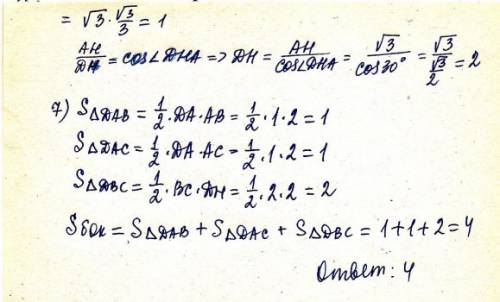 = √3 · √3/3 = 1
AH/DH = cos∠DHA => DH = AH/cos∠DHA = √3/cos30° = √3/(√3/2) = 2
7) S△DAB = 1/2 · DA · AB = 1/2 · 1 · 2 = 1
S△DAC = 1/2 · DA · AC = 1/2 · 1 · 2 = 1
S△DBC = 1/2 · BC · DH = 1/2 · 2 · 2 = 2
Sбок = S△DAB + S△DAC + S△DBC = 1+1+2=4
Ответ: 4